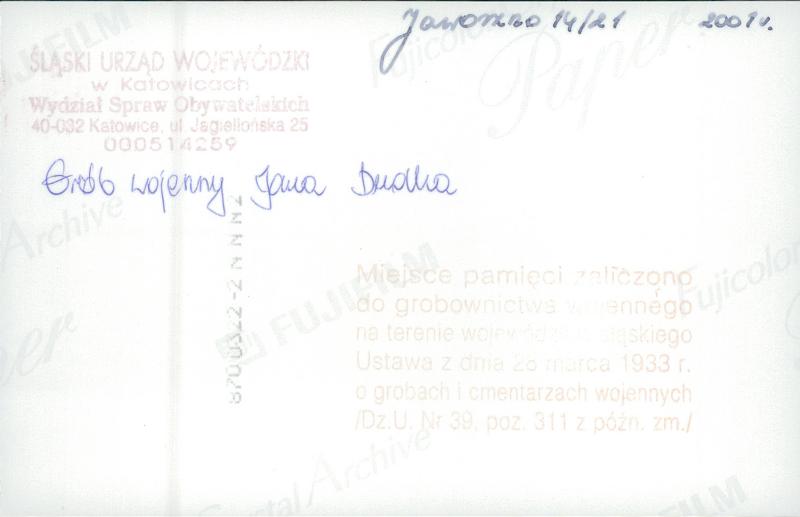 Jaworzno 14/21 2001 r.
ŚLĄSKI URZĄD WOJEWÓDZKI
w Katowicach
Wydział Spraw Obywatelskich
40-032 Katowice, ul. Jagiellońska 25
000514259
Grób wojenny Jana Dudka
8700322-2 N N N N2
Miejsce pamięci zaliczono
do grobownictwa wojennego
na terenie województwa śląskiego
Ustawa z dnia 28 marca 1933 r.
o grobach i cmentarzach wojennych
/Dz.U. Nr 39, poz. 311 z późn. zm./
FUJIFILM
Fujicolor
Paper
Archive
FUJIFILM
Fujicolor
Paper
Crystal Archive
FUJIFILM